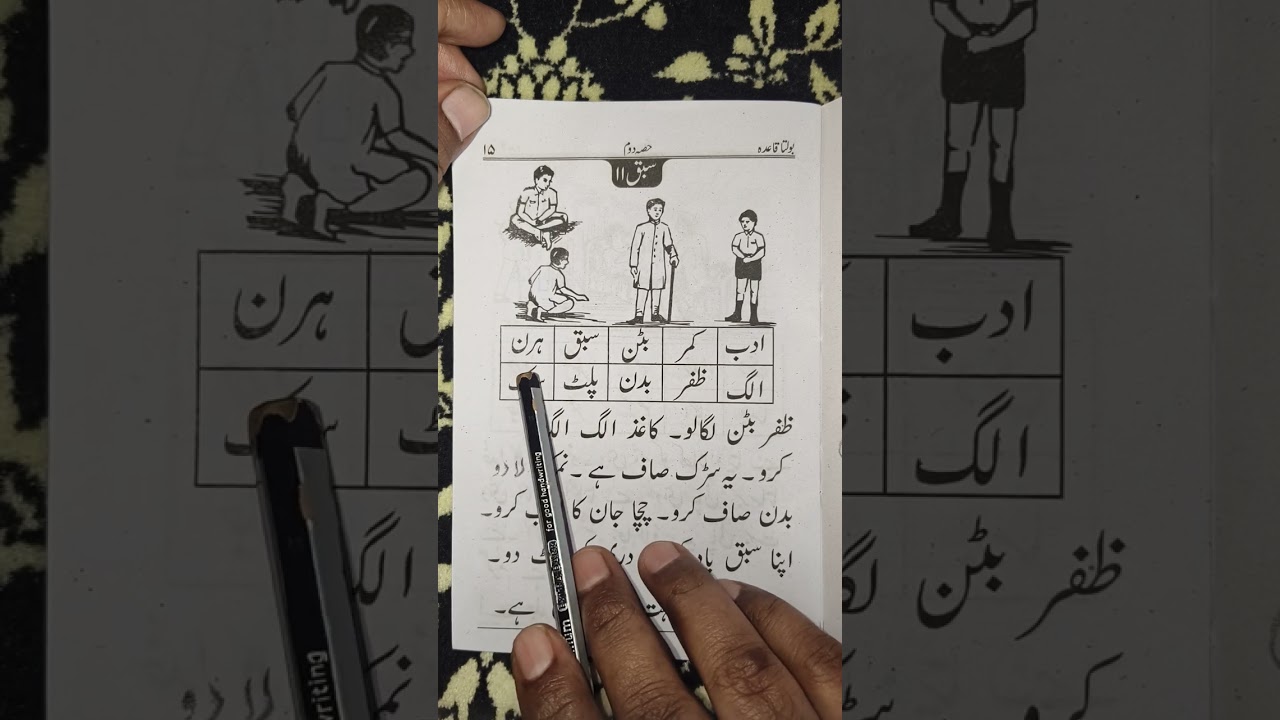 بولتا قاعدہ حصہ دوم ۱۵
سبق ۱۱
ادب کمر بٹن سبق ہرن
الگ ظفر بدن پلٹ
ظفر بٹن لگالو۔ کاغذ الگ الگ
کرو۔ یہ سڑک صاف ہے۔ لا دو
بدن صاف کرو۔ چچا جان کا کرو۔
اپنا سبق دو۔
ہے۔
for good handwriting